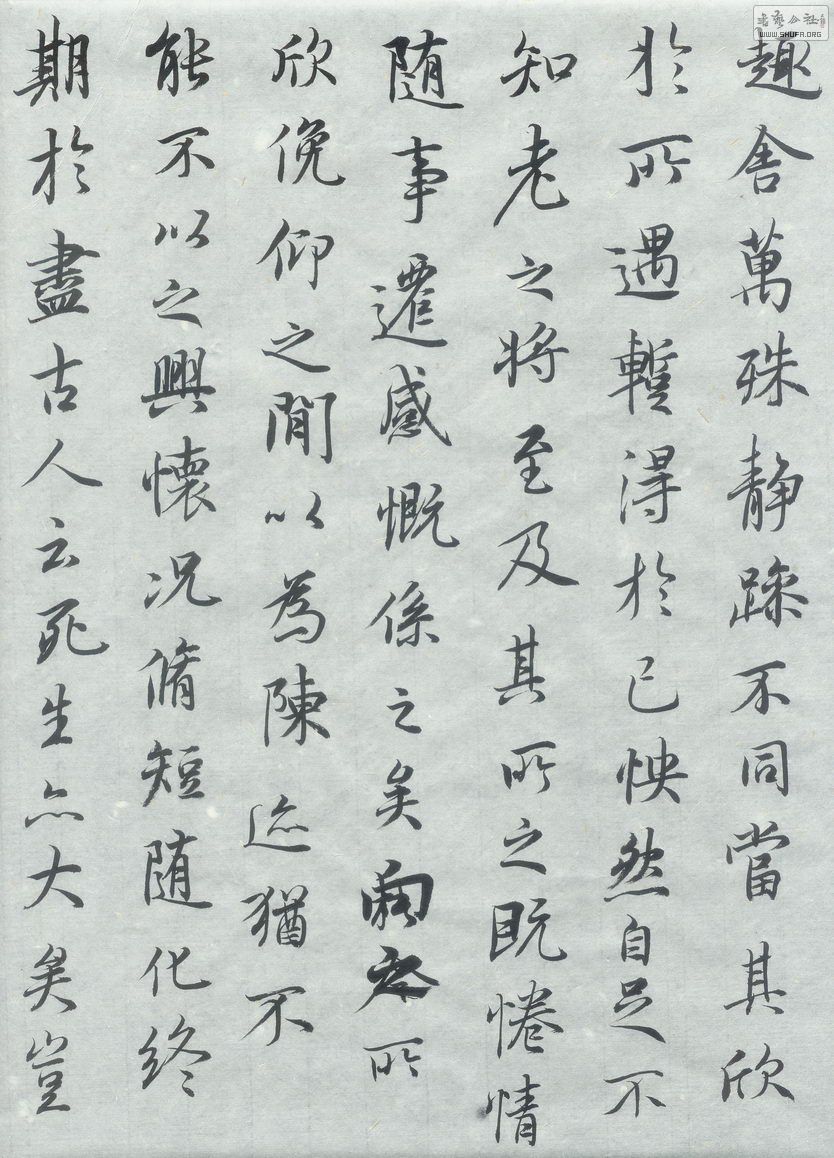 趣舍萬殊静躁不同當其欣
於所遇暫得於己怏然自足不
知老之将至及其所之既惓情
随事遷感慨係之矣向之所
欣俛仰之閒以為陳迹猶不
能不以之興懷况脩短随化終
期於盡古人云死生亦大矣豈
書藝公社
WWW.SHUFA.ORG